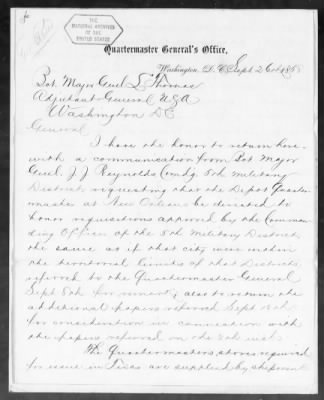 THE NATIONAL ARCHIVES OF THE UNITED STATES
Quartermaster General's Office,
Washington, D.C. Sept 26th 1868
Bvt. Major Genl. L. Thomas
Adjutant General U.S.A
Washington D.C.
General
I have the honor to return here-
with a communication from Bvt Major
Genl. J. J. Reynolds Comdg. 5th Military
District, requesting that the Depot Quarter-
master at New Orleans be directed to
honor requisitions approved by the Comman-
ding Officer of the 5th Military District,
the same as if that city were within
the territorial limits of that District;
referred to the Quartermaster General
Sept 8th for remark; also to return the
additional papers referred Sept
for consideration in connection with
the papers referred on the 8th inst.
The Quartermasters stores required
for issue in Texas are supplied by shipment